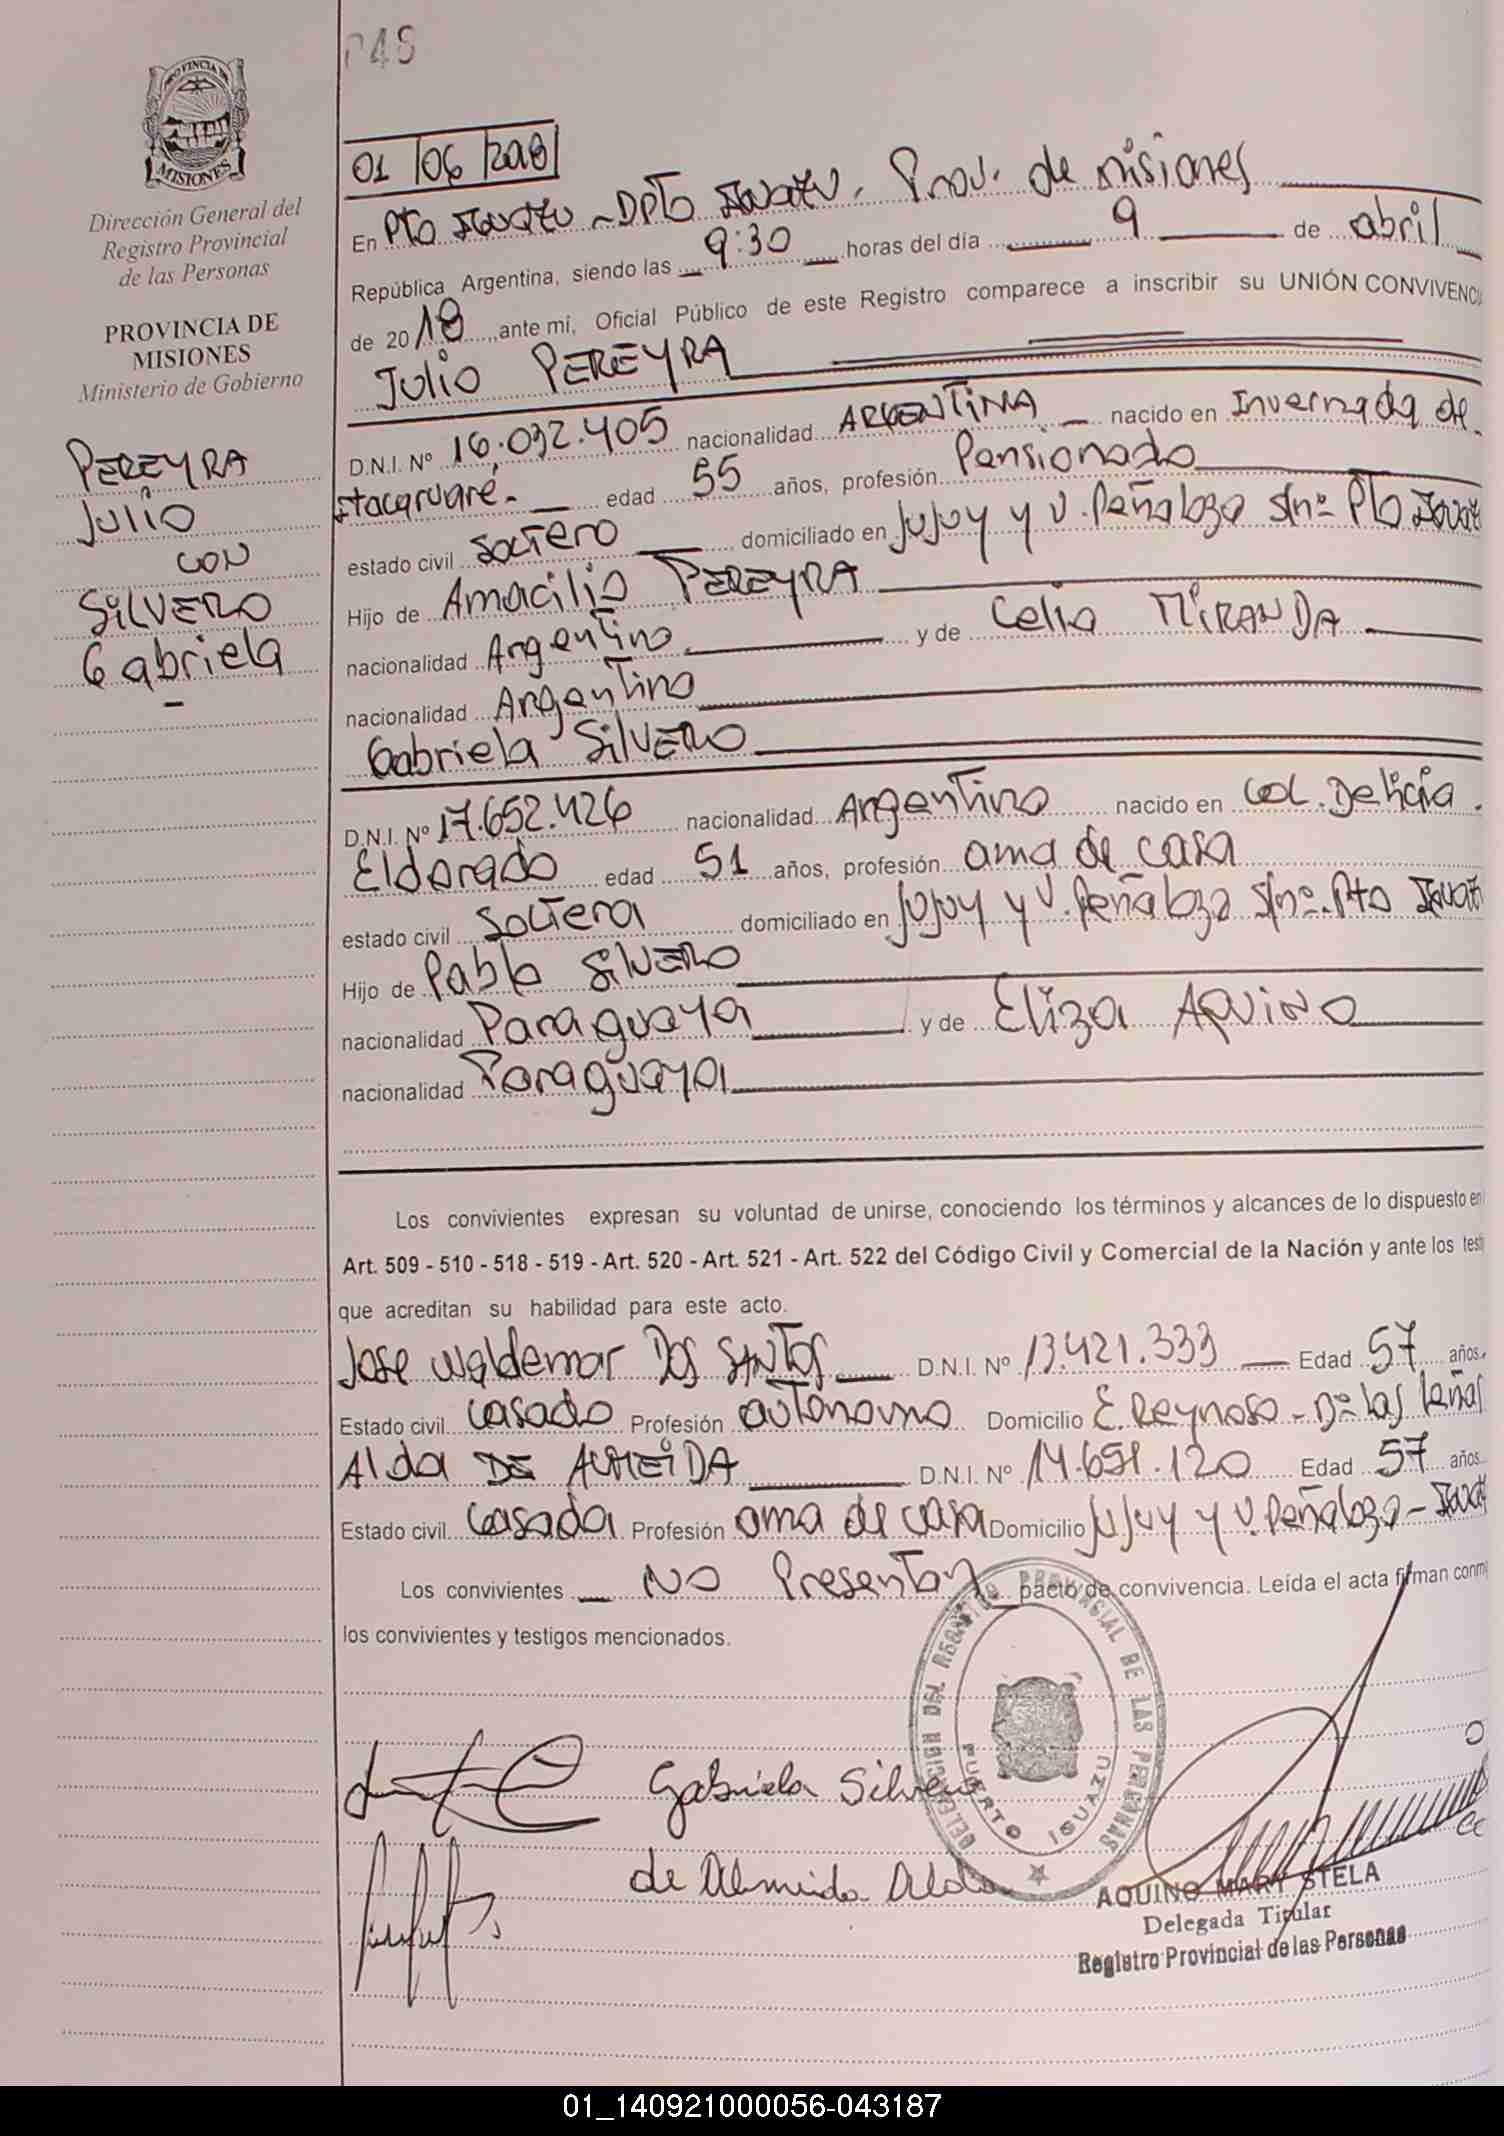 P48
PROVINCIA DE
MISIONES
Dirección General del
Registro Provincial
de las Personas
PROVINCIA DE
MISIONES
Ministerio de Gobierno
PEREYRA
Julio
CON
SILVERO
Gabriela
01 / 06 / 2018
En Pto Iguazu - DPTO Iguazu. Prov. de misiones
República Argentina, siendo las 9:30 horas del día 9 de abril
de 2018, ante mí, Oficial Público de este Registro comparece a inscribir su UNIÓN CONVIVENCI
Julio PEREYRA
D.N.I. Nº 16.032.405 nacionalidad ARGENTINA nacido en Invernada de
Itacaruaré. edad 55 años, profesión Pensionado
estado civil Soltero domiciliado en Jujuy y V. Peñaloza S/nº Pto Iguazu
Hijo de Amacilio PEREYRA
nacionalidad Argentino y de Celia MIRANDA
nacionalidad Argentino
Gabriela SILVERO
D.N.I. Nº 17.652.426 nacionalidad Argentino nacido en COL. Delicia.
Eldorado edad 51 años, profesión ama de casa
estado civil Soltera domiciliado en Jujuy y V. Peñaloza S/nº. Pto Iguazu
Hijo de Pablo SILVERO
nacionalidad Paraguaya y de Eliza AQUINO
nacionalidad Paraguaya
Los convivientes expresan su voluntad de unirse, conociendo los términos y alcances de lo dispuesto en
Art. 509 - 510 - 518 - 519 - Art. 520 - Art. 521 - Art. 522 del Código Civil y Comercial de la Nación y ante los test
que acreditan su habilidad para este acto.
Jose Waldemar DOS SANTOS D.N.I. Nº 13.421.333 Edad 57 años.
Estado civil Casado Profesión autonomo Domicilio E. Reynoso - Dº las Leñas
Alda DE ALMEIDA D.N.I. Nº 14.651.120 Edad 57 años
Estado civil Casada Profesión ama de casa Domicilio Jujuy y V. Peñaloza - Iguazu
Los convivientes NO Presentan pacto de convivencia. Leída el acta firman conm
los convivientes y testigos mencionados.
DELEGACION DEL REGISTRO PROVINCIAL DE LAS PERSONAS
PUERTO IGUAZU
Gabriela Silvero
de Almeida Alda
AQUINO MARY STELA
Delegada Titular
Registro Provincial de las Personas
01_140921000056-043187